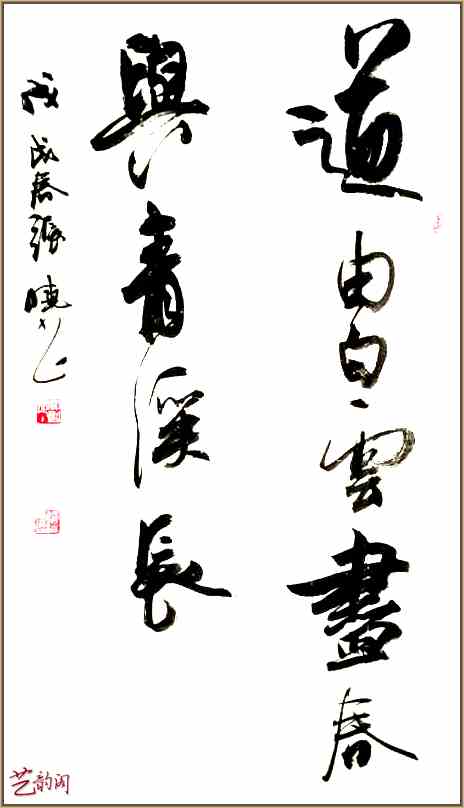 道由白雲盡春
與青溪長
戊戌春張曉
艺韵阁